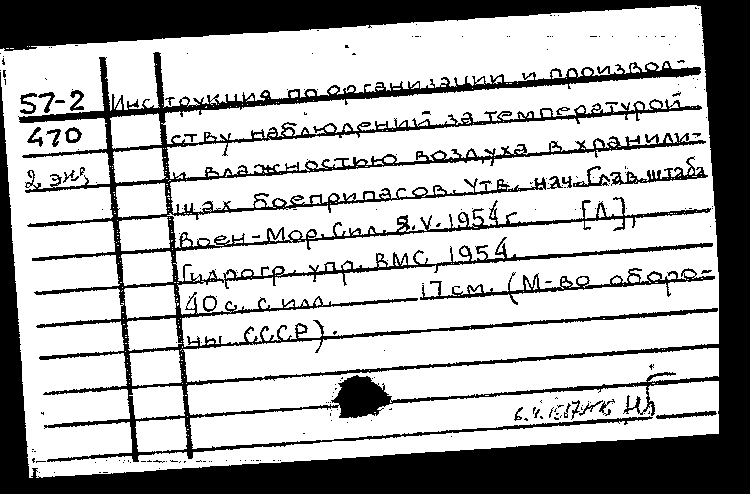 57-2 Инструкция по организации и производ-
470 ству наблюдений за температурой
2 экз и влажностью воздуха в хранили-
щах боеприпасов. Утв. нач. Глав. штаба
Воен-Мор. Сил. 8.V.1954г. [Л.],
Гидрогр. упр. ВМС, 1954.
40 с. с илл. 17 см. (М-во оборо-
ны СССР).